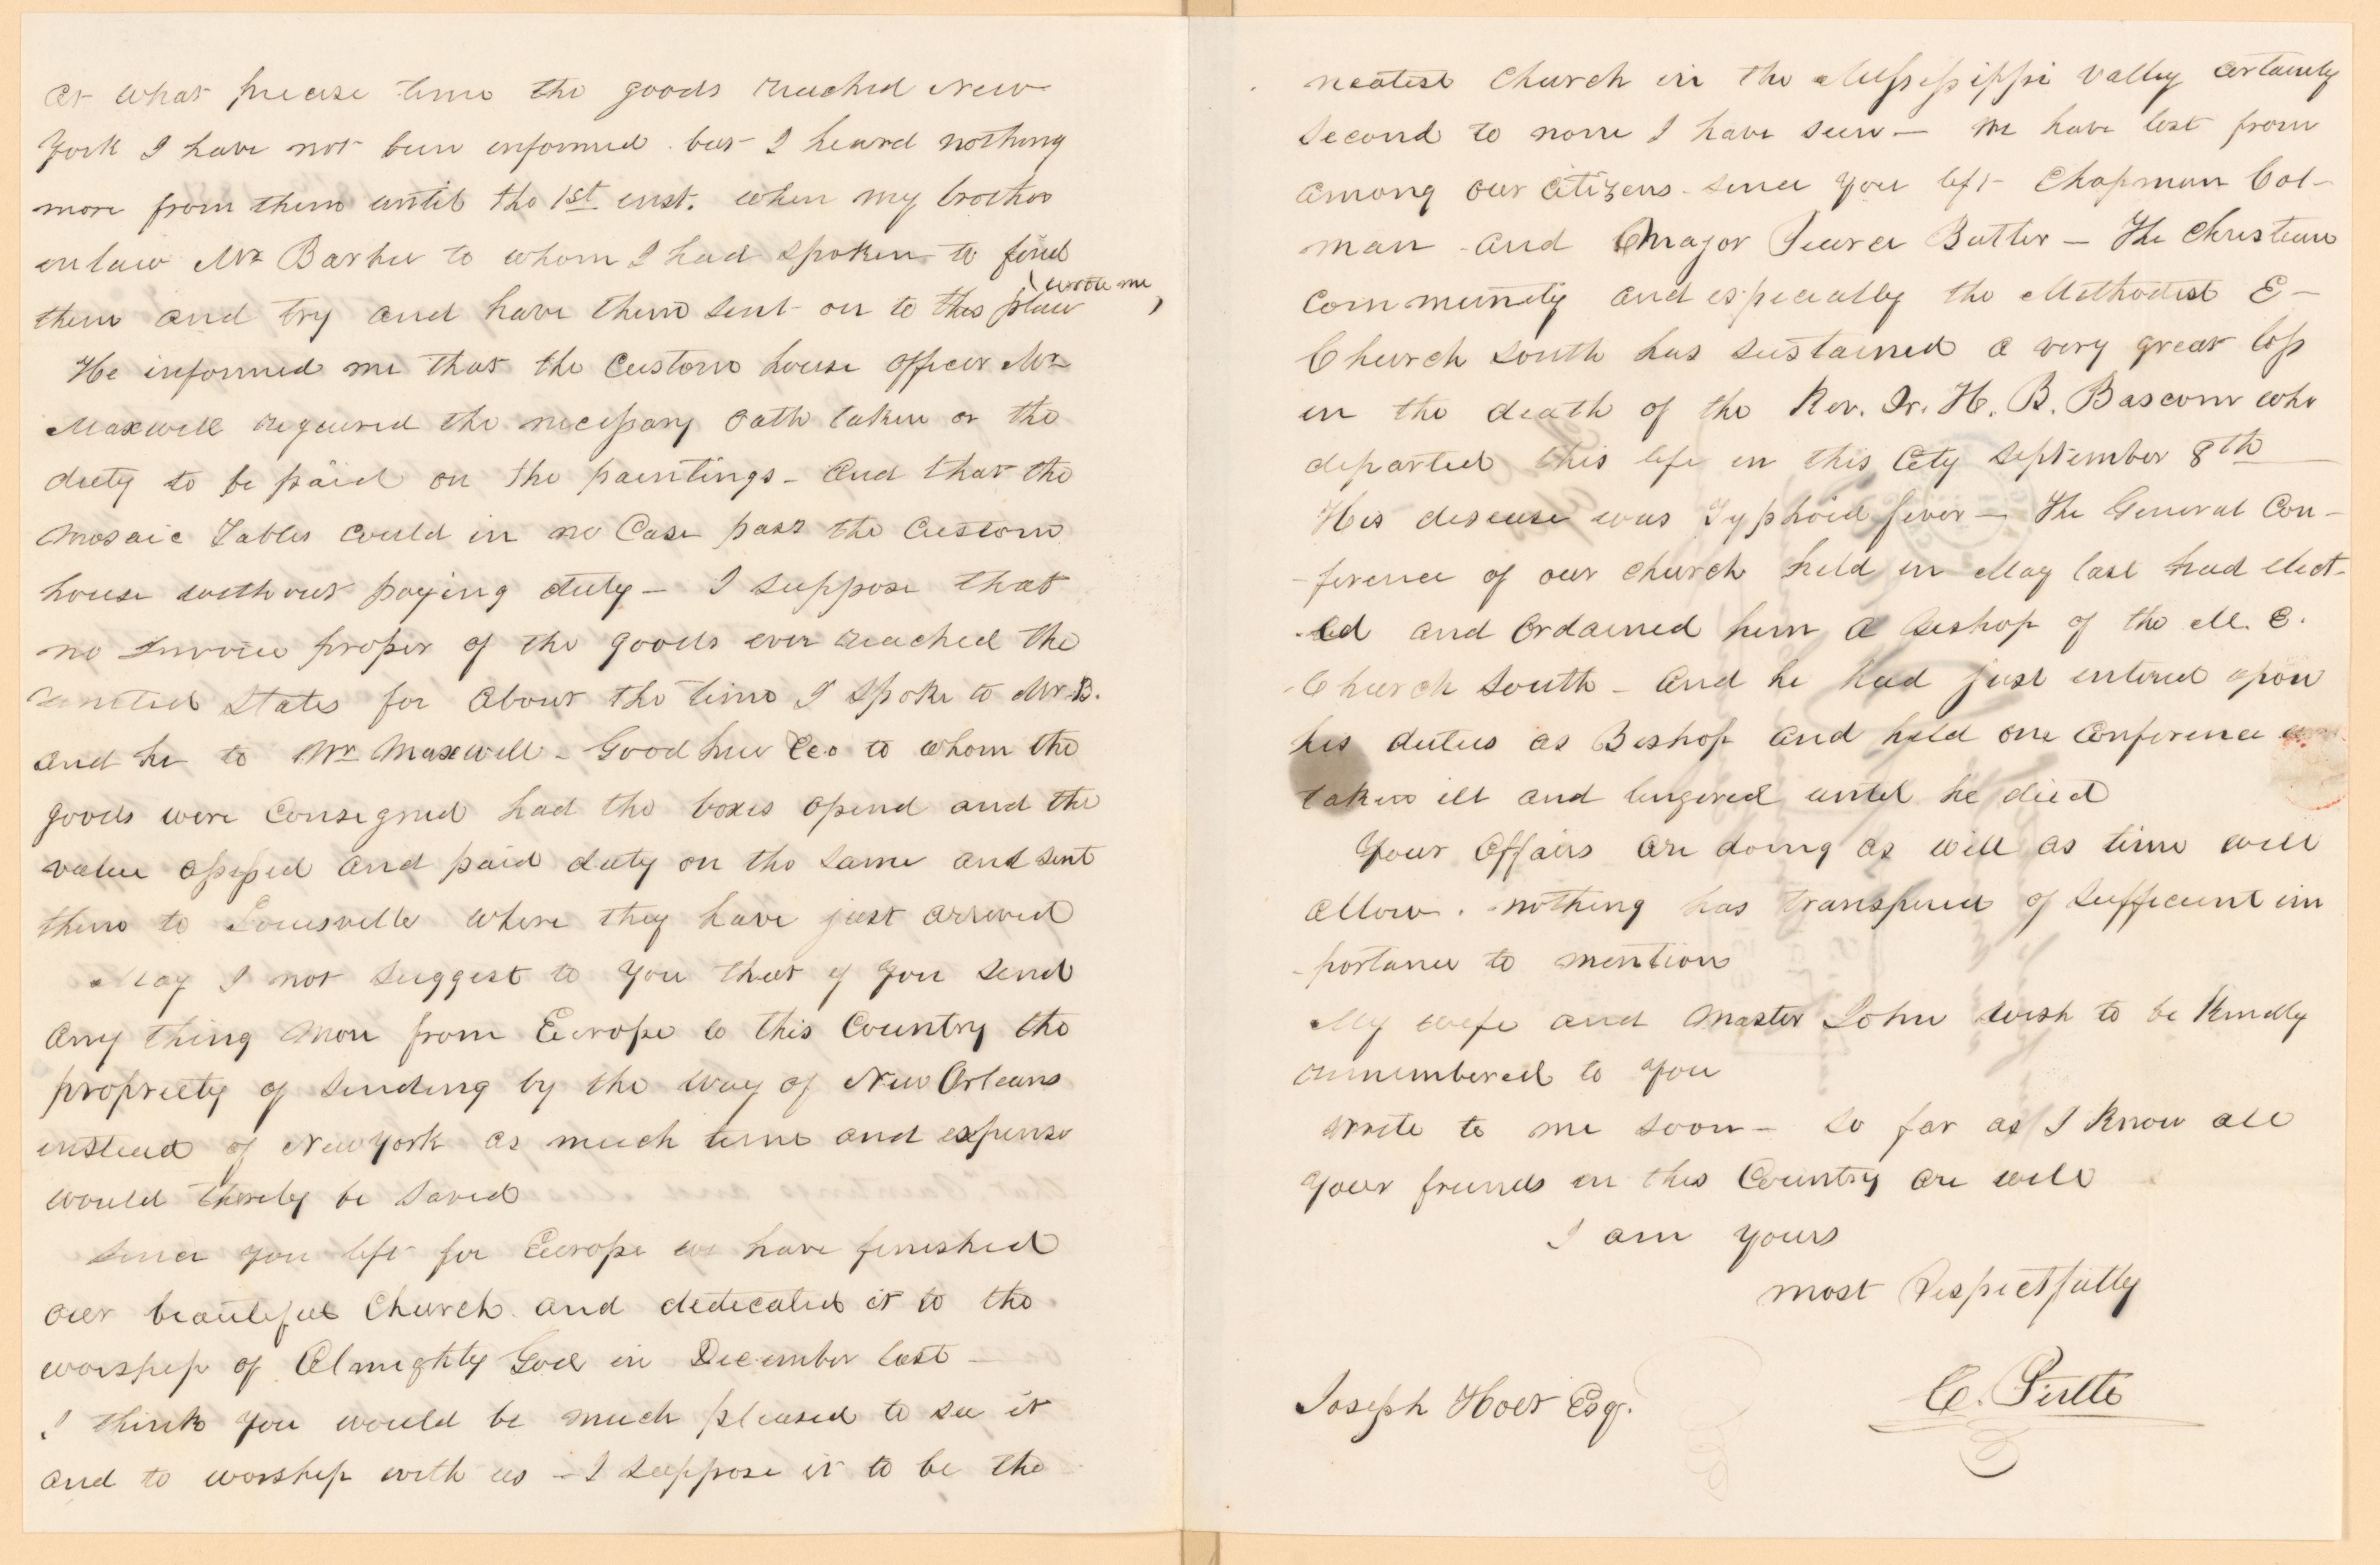 at what precise time the goods reached New
York I have not been informed but I heard nothing
more from them until the 1st inst. when my brother
in law Mr Barker to whom I had spoken to find
wrote me,
them and try and have them sent on to this place
He informed me that the Custom house officer Mr
Maxwell required the necessary oath taken or the
duty to be paid on the paintings - And that the
Mosaic Tables could in no Case pass the Custom
house without paying duty - I suppose that
no Invoice proper of the goods ever reached the
United States for about the time I spoke to Mr B.
and he to Mr Maxwell - Goodhue & Co to whom the
goods were Consigned had the boxes opend and the
value assessed and paid duty on the same and sent
them to Louisville where they have just arrived
May I not suggest to you that if you send
any thing more from Europe to this Country the
propriety of sending by the way of New Orleans
instead of New York as much time and expense
would thereby be saved
Since you left for Europe we have finished
our beautiful Church and dedicated it to the
worship of Almighty God in December last -
I think you would be much pleased to see it
and to worship with us - I suppose it to be the
neatest Church in the Mississippi valley certainly
second to none I have seen - We have lost from
among our citizens since you left Chapman Col-
man and Major Pearce Butler - The Christian
Community and especially the Methodist E-
Church South has sustained a very great loss
in the death of the Rev. Dr. H. B. Bascom who
departed this life in this City September 8th
His disease was Typhoid fever - The General Con-
-ference of our Church held in May last had elect-
-ed and Ordained him a Bishop of the M. E.
Church South - And he had just entered upon
his duties as Bishop and held one Conference
taken ill and lingered until he died
Your Affairs are doing as well as time will
allow. nothing has transpired of sufficient im
-portance to mention
My wife and Master John wish to be Kindly
remembered to you
Write to me soon - so far as I know all
your friends in this Country are well
I am yours
most Respectfully
Joseph Holt Esq.
C. Pirtle